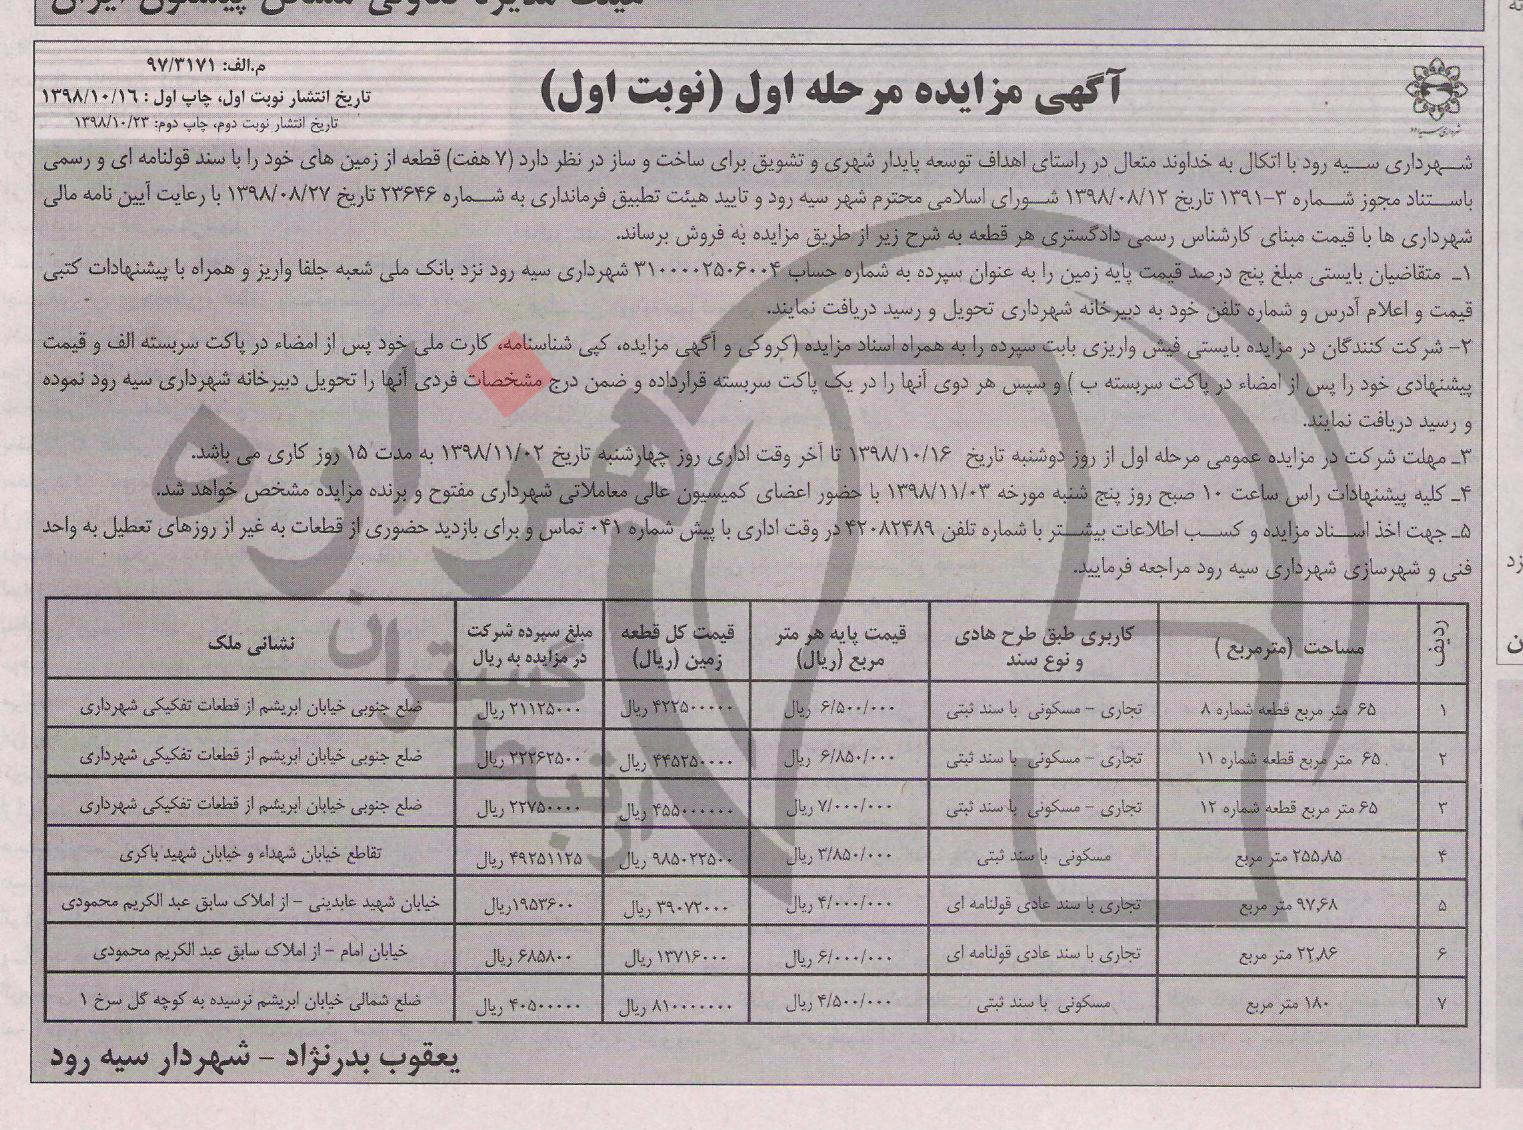 آگهی مزایده مرحله اول (نوبت اول)
م.الف: ۹۷/۳۱۷۱
تاریخ انتشار نوبت اول، چاپ اول : ۱۳۹۸/۱۰/۱۶
تاریخ انتشار نوبت دوم، چاپ دوم: ۱۳۹۸/۱۰/۲۳
شهرداری سیه رود با اتکال به خداوند متعال در راستای اهداف توسعه پایدار شهری و تشویق برای ساخت و ساز در نظر دارد (۷ هفت) قطعه از زمین های خود را با سند قولنامه ای و رسمی
باستناد مجوز شماره ۳-۱۳۹۱ تاریخ ۱۳۹۸/۰۸/۱۲ شورای اسلامی محترم شهر سیه رود و تایید هیئت تطبیق فرمانداری به شماره ۲۳۶۴۶ تاریخ ۱۳۹۸/۰۸/۲۷ با رعایت آیین نامه مالی
شهرداری ها با قیمت مبنای کارشناس رسمی دادگستری هر قطعه به شرح زیر از طریق مزایده به فروش برساند.
۱ـ متقاضیان بایستی مبلغ پنج درصد قیمت پایه زمین را به عنوان سپرده به شماره حساب ۳۱۰۰۰۰۲۵۰۶۰۰۴ شهرداری سیه رود نزد بانک ملی شعبه جلفا واریز و همراه با پیشنهادات کتبی
قیمت و اعلام آدرس و شماره تلفن خود به دبیرخانه شهرداری تحویل و رسید دریافت نمایند.
۲- شرکت کنندگان در مزایده بایستی فیش واریزی بابت سپرده را به همراه اسناد مزایده (کروکی و آگهی مزایده، کپی شناسنامه، کارت ملی خود پس از امضاء در پاکت سربسته الف و قیمت
پیشنهادی خود را پس از امضاء در پاکت سربسته ب ) و سپس هر دوی آنها را در یک پاکت سربسته قرارداده و ضمن درج مشخصات فردی آنها را تحویل دبیرخانه شهرداری سیه رود نموده
و رسید دریافت نمایند.
۳ـ مهلت شرکت در مزایده عمومی مرحله اول از روز دوشنبه تاریخ ۱۳۹۸/۱۰/۱۶ تا آخر وقت اداری روز چهارشنبه تاریخ ۱۳۹۸/۱۱/۰۲ به مدت ۱۵ روز کاری می باشد.
۴ـ کلیه پیشنهادات راس ساعت ۱۰ صبح روز پنج شنبه مورخه ۱۳۹۸/۱۱/۰۳ با حضور اعضای کمیسیون عالی معاملاتی شهرداری مفتوح و برنده مزایده مشخص خواهد شد.
۵ـ جهت اخذ اسناد مزایده و کسب اطلاعات بیشتر با شماره تلفن ۴۲۰۸۲۴۸۹ در وقت اداری با پیش شماره ۰۴۱ تماس و برای بازدید حضوری از قطعات به غیر از روزهای تعطیل به واحد
فنی و شهرسازی شهرداری سیه رود مراجعه فرمایید.
ردیف مساحت (مترمربع ) کاربری طبق طرح هادی و نوع سند قیمت پایه هر متر مربع (ریال) قیمت کل قطعه زمین (ریال) مبلغ سپرده شرکت در مزایده به ریال نشانی ملک
۱ ۶۵ متر مربع قطعه شماره ۸ تجاری - مسکونی با سند ثبتی ۶/۵۰۰/۰۰۰ ریال ۴۲۲۵۰۰۰۰۰ ریال ۲۱۱۲۵۰۰۰ ریال ضلع جنوبی خیابان ابریشم از قطعات تفکیکی شهرداری
۲ ۶۵ متر مربع قطعه شماره ۱۱ تجاری - مسکونی با سند ثبتی ۶/۸۵۰/۰۰۰ ریال ۴۴۵۲۵۰۰۰۰ ریال ۲۲۲۶۲۵۰۰ ریال ضلع جنوبی خیابان ابریشم از قطعات تفکیکی شهرداری
۳ ۶۵ متر مربع قطعه شماره ۱۲ تجاری - مسکونی با سند ثبتی ۷/۰۰۰/۰۰۰ ریال ۴۵۵۰۰۰۰۰۰ ریال ۲۲۷۵۰۰۰۰ ریال ضلع جنوبی خیابان ابریشم از قطعات تفکیکی شهرداری
۴ ۲۵۵٫۸۵ متر مربع مسکونی با سند ثبتی ۳/۸۵۰/۰۰۰ ریال ۹۸۵۰۲۲۵۰۰ ریال ۴۹۲۵۱۱۲۵ ریال تقاطع خیابان شهداء و خیابان شهید باکری
۵ ۹۷٫۶۸ متر مربع تجاری با سند عادی قولنامه ای ۴/۰۰۰/۰۰۰ ریال ۳۹۰۷۲۰۰۰ ریال ۱۹۵۳۶۰۰ریال خیابان شهید عابدینی - از املاک سابق عبد الکریم محمودی
۶ ۲۲٫۸۶ متر مربع تجاری با سند عادی قولنامه ای ۶/۰۰۰/۰۰۰ ریال ۱۳۷۱۶۰۰۰ ریال ۶۸۵۸۰۰ ریال خیابان امام - از املاک سابق عبد الکریم محمودی
۷ ۱۸۰ متر مربع مسکونی با سند ثبتی ۴/۵۰۰/۰۰۰ ریال ۸۱۰۰۰۰۰۰۰ ریال ۴۰۵۰۰۰۰۰ ریال ضلع شمالی خیابان ابریشم نرسیده به کوچه گل سرخ ۱
یعقوب بدرنژاد - شهردار سیه رود
هزاره
گستران
ارتباط